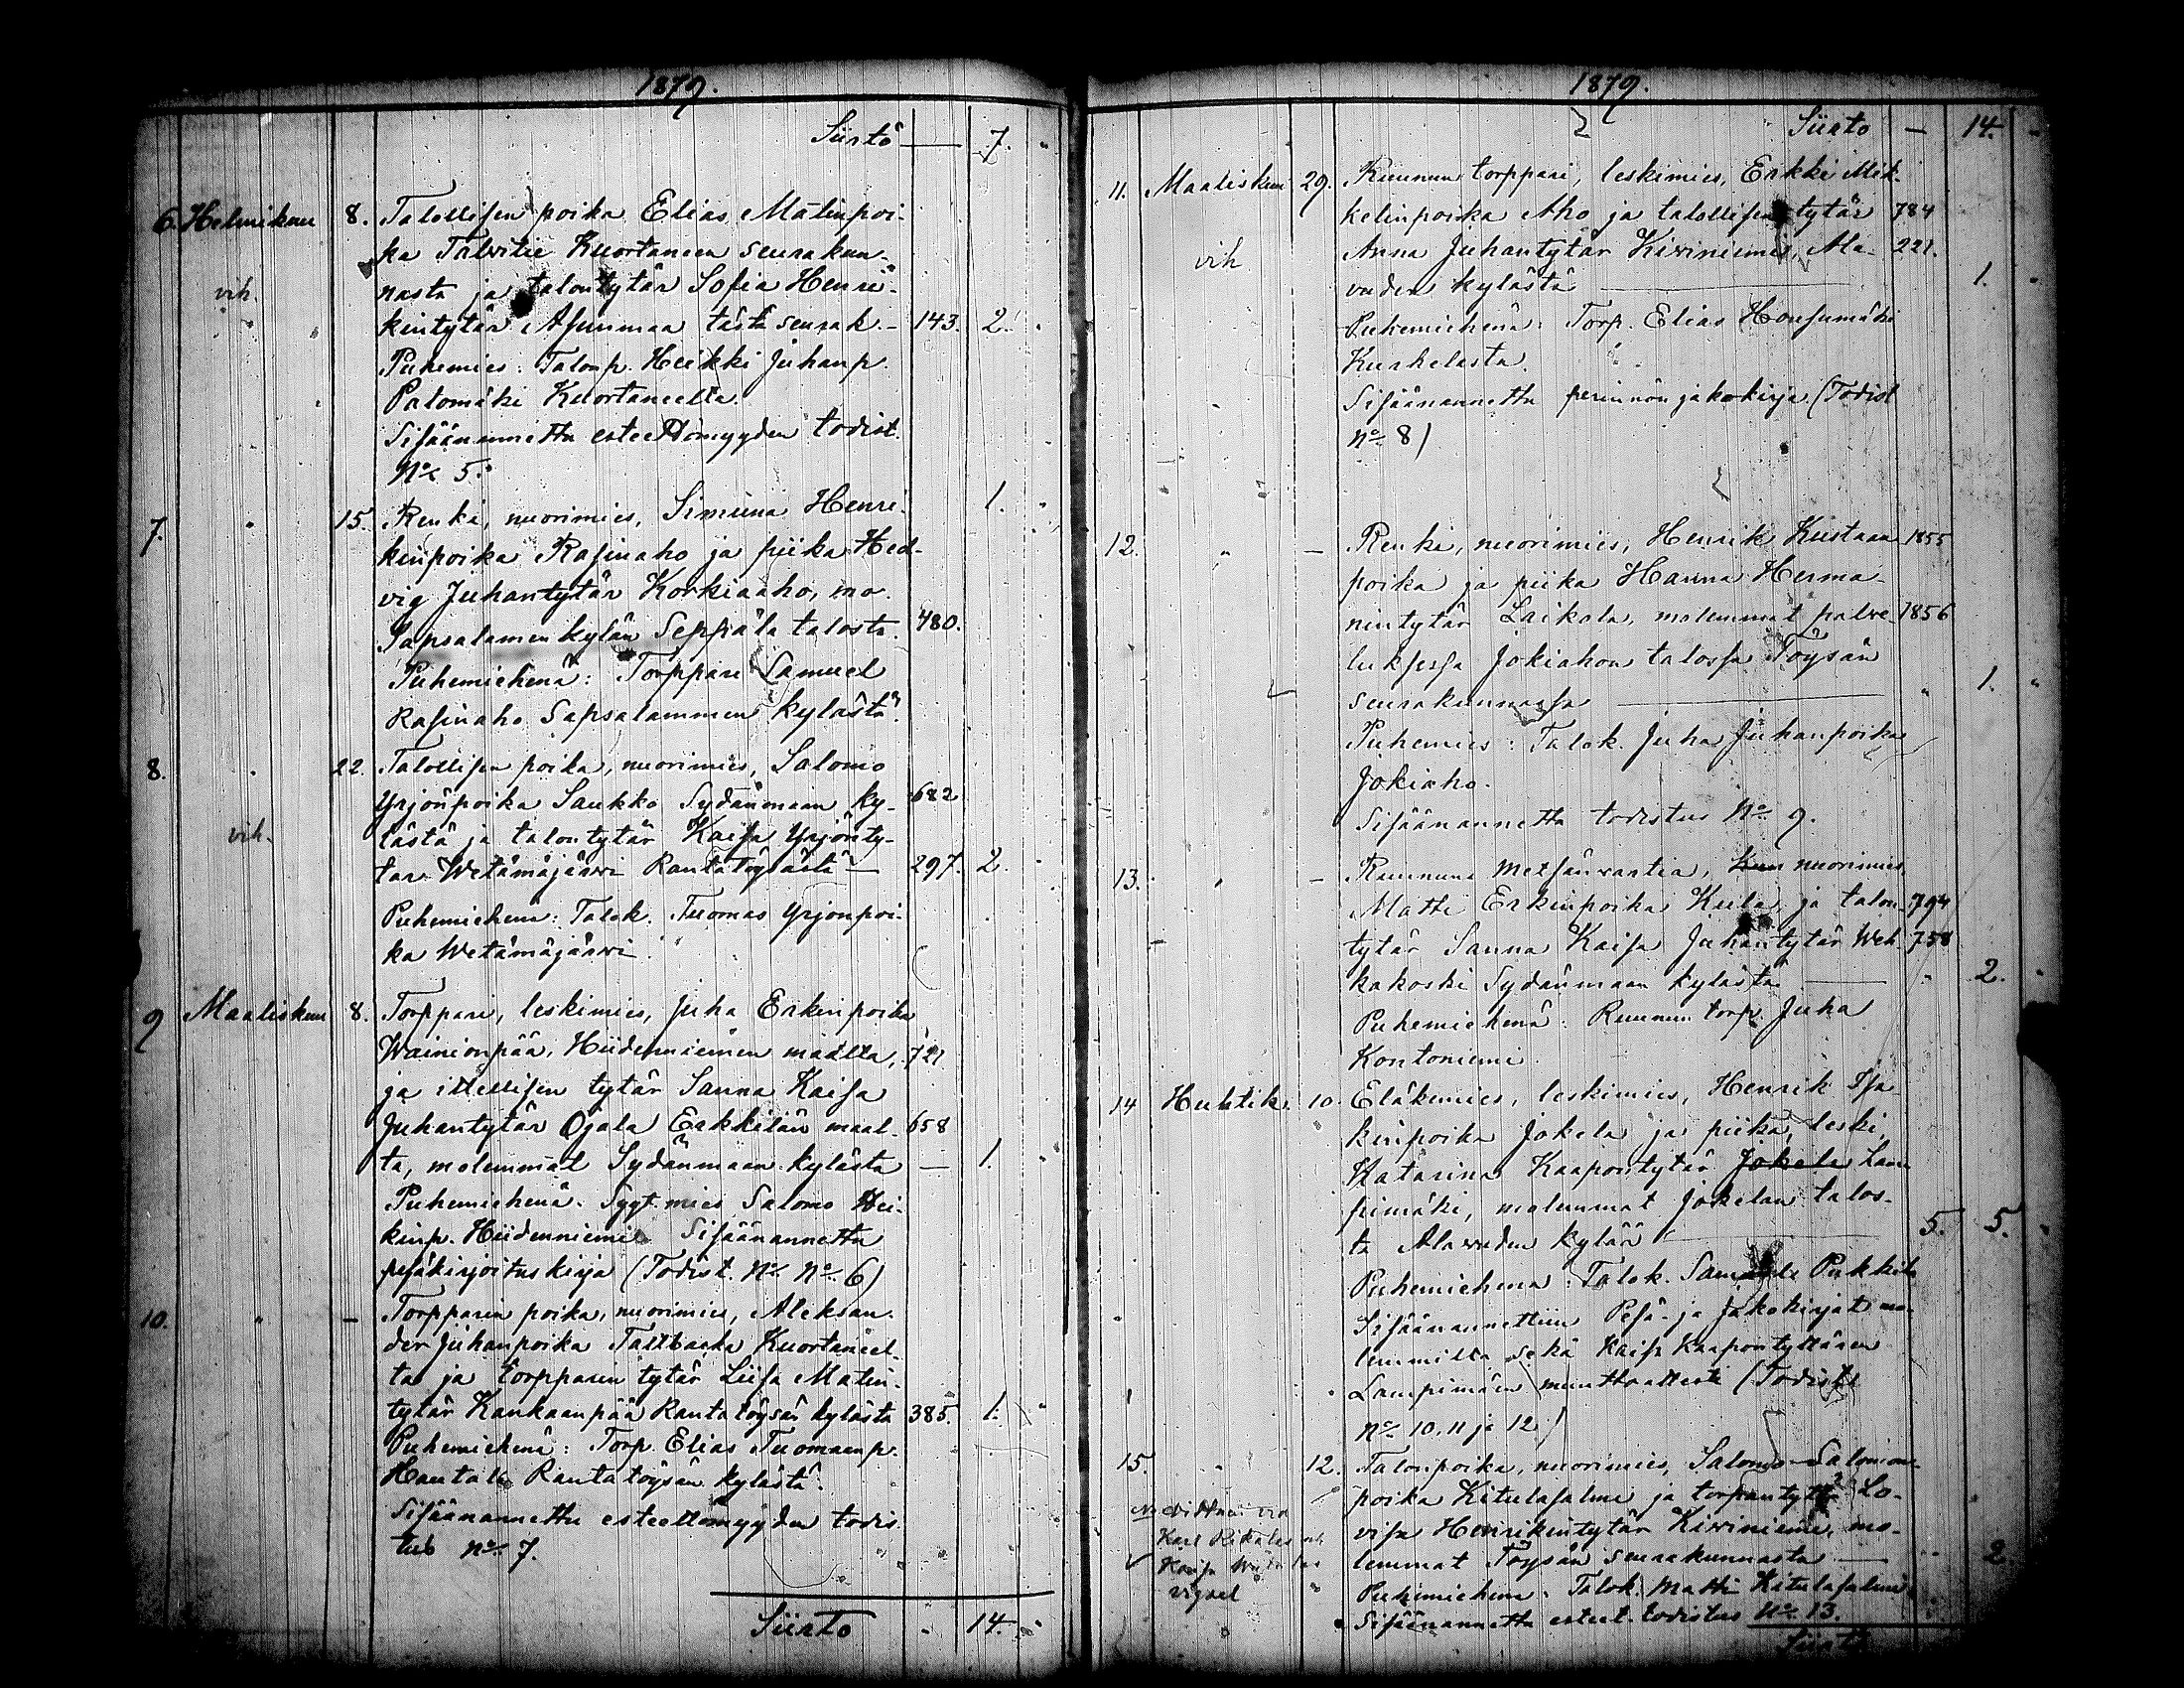 1879.
Siirto — 7. "
6. Helmikuu 8. Talollisen poika Elias Matinpoi-
ka Talvitie Kuortaneen seurakun-
vih. nasta ja talontytär Sofia Henri-
kintytär Asunmaa tästä seurak. — 143. 2. "
Puhemies: Talonp. Heikki Juhanp.
Palomäki Kuortaneelta.
Sisäänannettu esteettömyyden todist.
No 5.
7. " 15. Renki, nuorimies, Simuna Henri- 1. "
kinpoika Rasinaho ja piika Hed-
vig Juhantytär Korkiaaho, mo.
Sapsalamen kylän Seppälä talosta. 480.
Puhemiehenä: Torppari Samuel
Rasinaho Sapsalammen kylästä.
8. " 22. Talollisen poika, nuorimies, Salomo
Yrjönpoika Saukko Sydänmaan ky- 682
vih. lästä ja talontytär Kaisa Yrjönty-
tär Wetämäjärwi Rantatöysästä — 297. 2. "
Puhemiehenä: Talok. Tuomas Yrjönpoi-
ka Wetämäjärwi.
9 Maaliskuu 8. Torppari, leskimies, Juha Erkinpoika
Wainionpää, Hiidenniemen maalta, 721
ja itellisen tytär Sanna Kaisa
Juhantytär Ojala Erkkilän maal- 658
ta, molemmat Sydänmaan kylästä — 1. "
Puhemiehenä. Sygt.mies Salomo Hei-
kinp. Hiidenniemi Sisäänannettu
pesäkirjoituskirja (Todist. No No 6)
10. " — Torpparin poika, nuorimies, Aleksan-
der Juhanpoika Tallbacka Kuortaneel-
ta ja torpparin tytär Liisa Matin-
tytär Kankaanpää Rantatöysän kylästä 385. 1. "
Puhemiehenä: Torp. Elias Tuomaanp.
Hautala Rantatöysän kylästä.
Sisäänannettu esteettömyyden todis-
tus No 7.
Siirto " 14. "
1879.
Siirto — 14. "
11. Maaliskuu 29. Ruunun torppari, leskimies, Erkki Mik-
kelinpoika Aho ja talollisen tytär 784
vih Anna Juhantytär Kiviniemi, Ala- 221.
vuden kylästä — 1. "
Puhemiehenä: Torp. Elias Honsumäki
Kurkelasta.
Sisäänannettu perinnönjakokirja (Todist
No 8)
12. " — Renki, nuorimies, Henrik Kustaan 1855
poika ja piika Hanna Herma-
nintytär Laikola, molemmat palve- 1856
luksessa Jokiahon talossa Töysän
seurakunnassa — " 1. "
Puhemies: Talok. Juha Juhanpoika
Jokiaho.
Sisäänannettu todistus No 9.
13. " — Ruununa metsänvartia, nuorimies,
Matti Erkinpoika Keila ja talon- 794
tytär Sanna Kaisa Juhantytär Weh- 758
kakoski Sydänmaan kylästä — " 2. "
Puhemiehenä: Ruunun torp. Juha
Kontoniemi
14 Huhtik. 10. Eläkemies, leskimies, Henrik Isa-
kinpoika Jokela ja piika, leski,
Katarina Kaapontytär Jokela Lam-
pimäki, molemmat Jokelan talos-
ta Alavuden kylää — 5. 5. "
Puhemiehenä: Talok. Samuel Pukkila
Sisäänannettiin Pesä- ja Jakokirjat mo-
lemmilta sekä Kaisa Kaapontyttären
Lampimäen muuttoattesti (Todist.
No 10, 11 ja 12)
15. " 12. Talonpoika, nuorimies, Salomo Salomon-
poika Kitulasalmi ja torparin tytär Lo-
visa Henrikintytär Kiviniemi, mo-
lemmat Töysän seurakunnasta — " 2.
Kaisa
vigsel
Puhemiehenä: Talok. Matti Kitulasalmi
Sisäänannettu esteet. todistus No 13.
Siirto